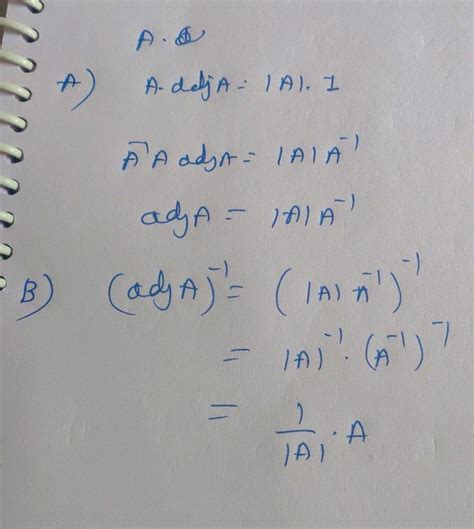 A.
A) A. adjA = |A|. I
A⁻¹A adjA = |A| A⁻¹
adjA = |A| A⁻¹
B) (adj A)⁻¹ = (|A| A⁻¹)⁻¹
= |A|⁻¹. (A⁻¹)⁻¹
= 1/|A| . A